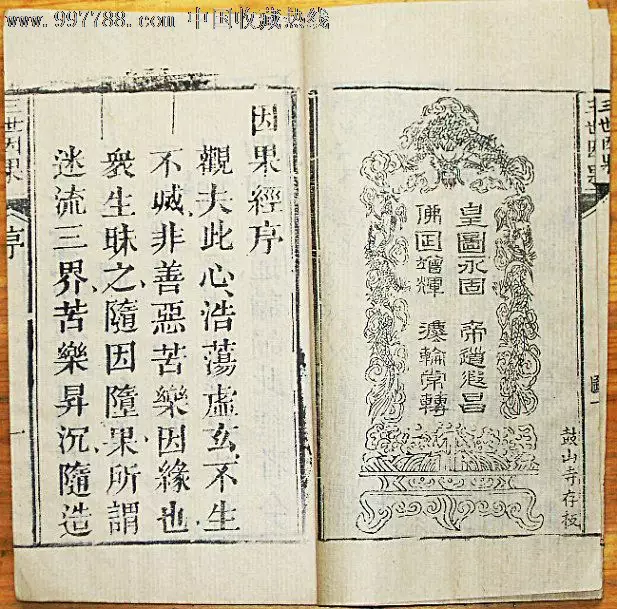 www.997788.com 中国收藏热线
三世因果 圖一
鼓山寺存板
皇圖永固 帝道遐昌
佛日增輝 法輪常轉
因果經序
觀夫此心浩蕩虛玄不生
不滅非善惡苦樂因緣也
衆生昧之隨因墮果所謂
迷流三界苦樂昇沉隨造
三世因果 序 一